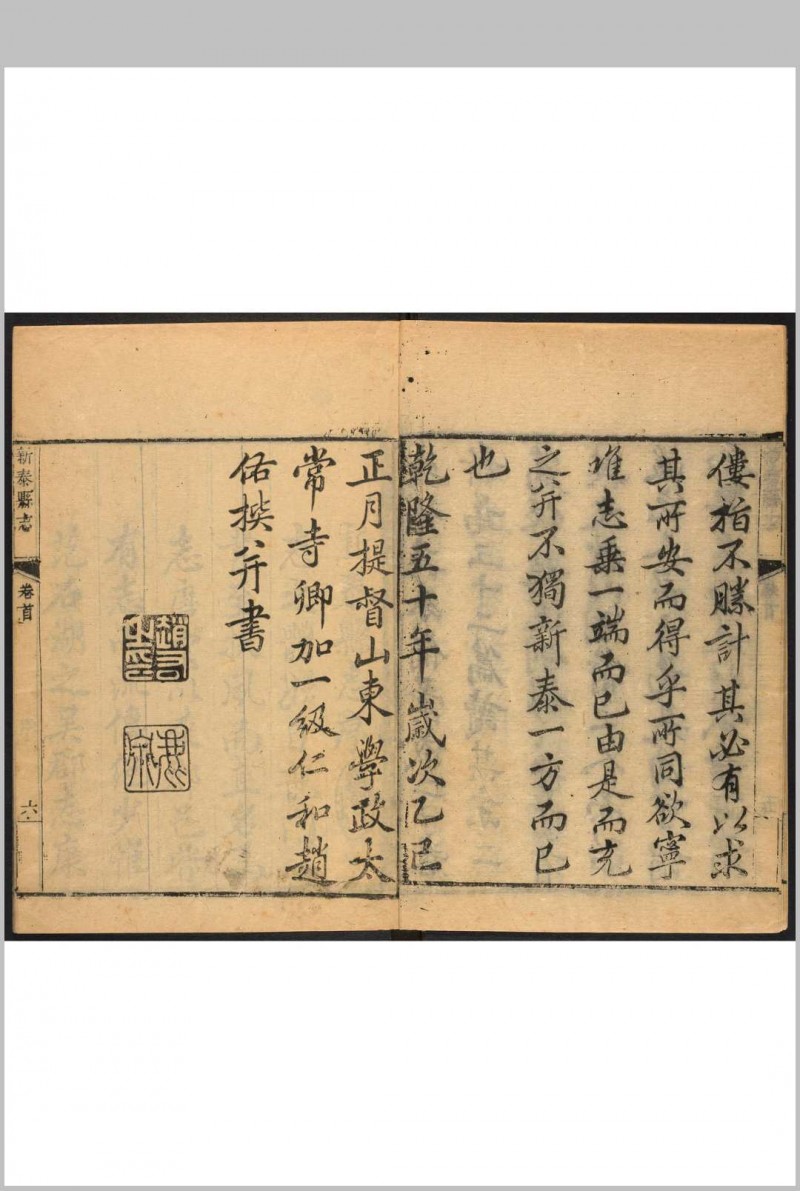 僂指不勝計其必有以求
其所安而得乎所同欲寧
惟志乗一端而已由是而充
之并不獨新泰一方而已
也
乾隆五十年歲次乙巳
正月提督山東學政太
常寺卿加一級仁和趙
佑撰并書
趙佑之印
新泰縣志
卷首
六